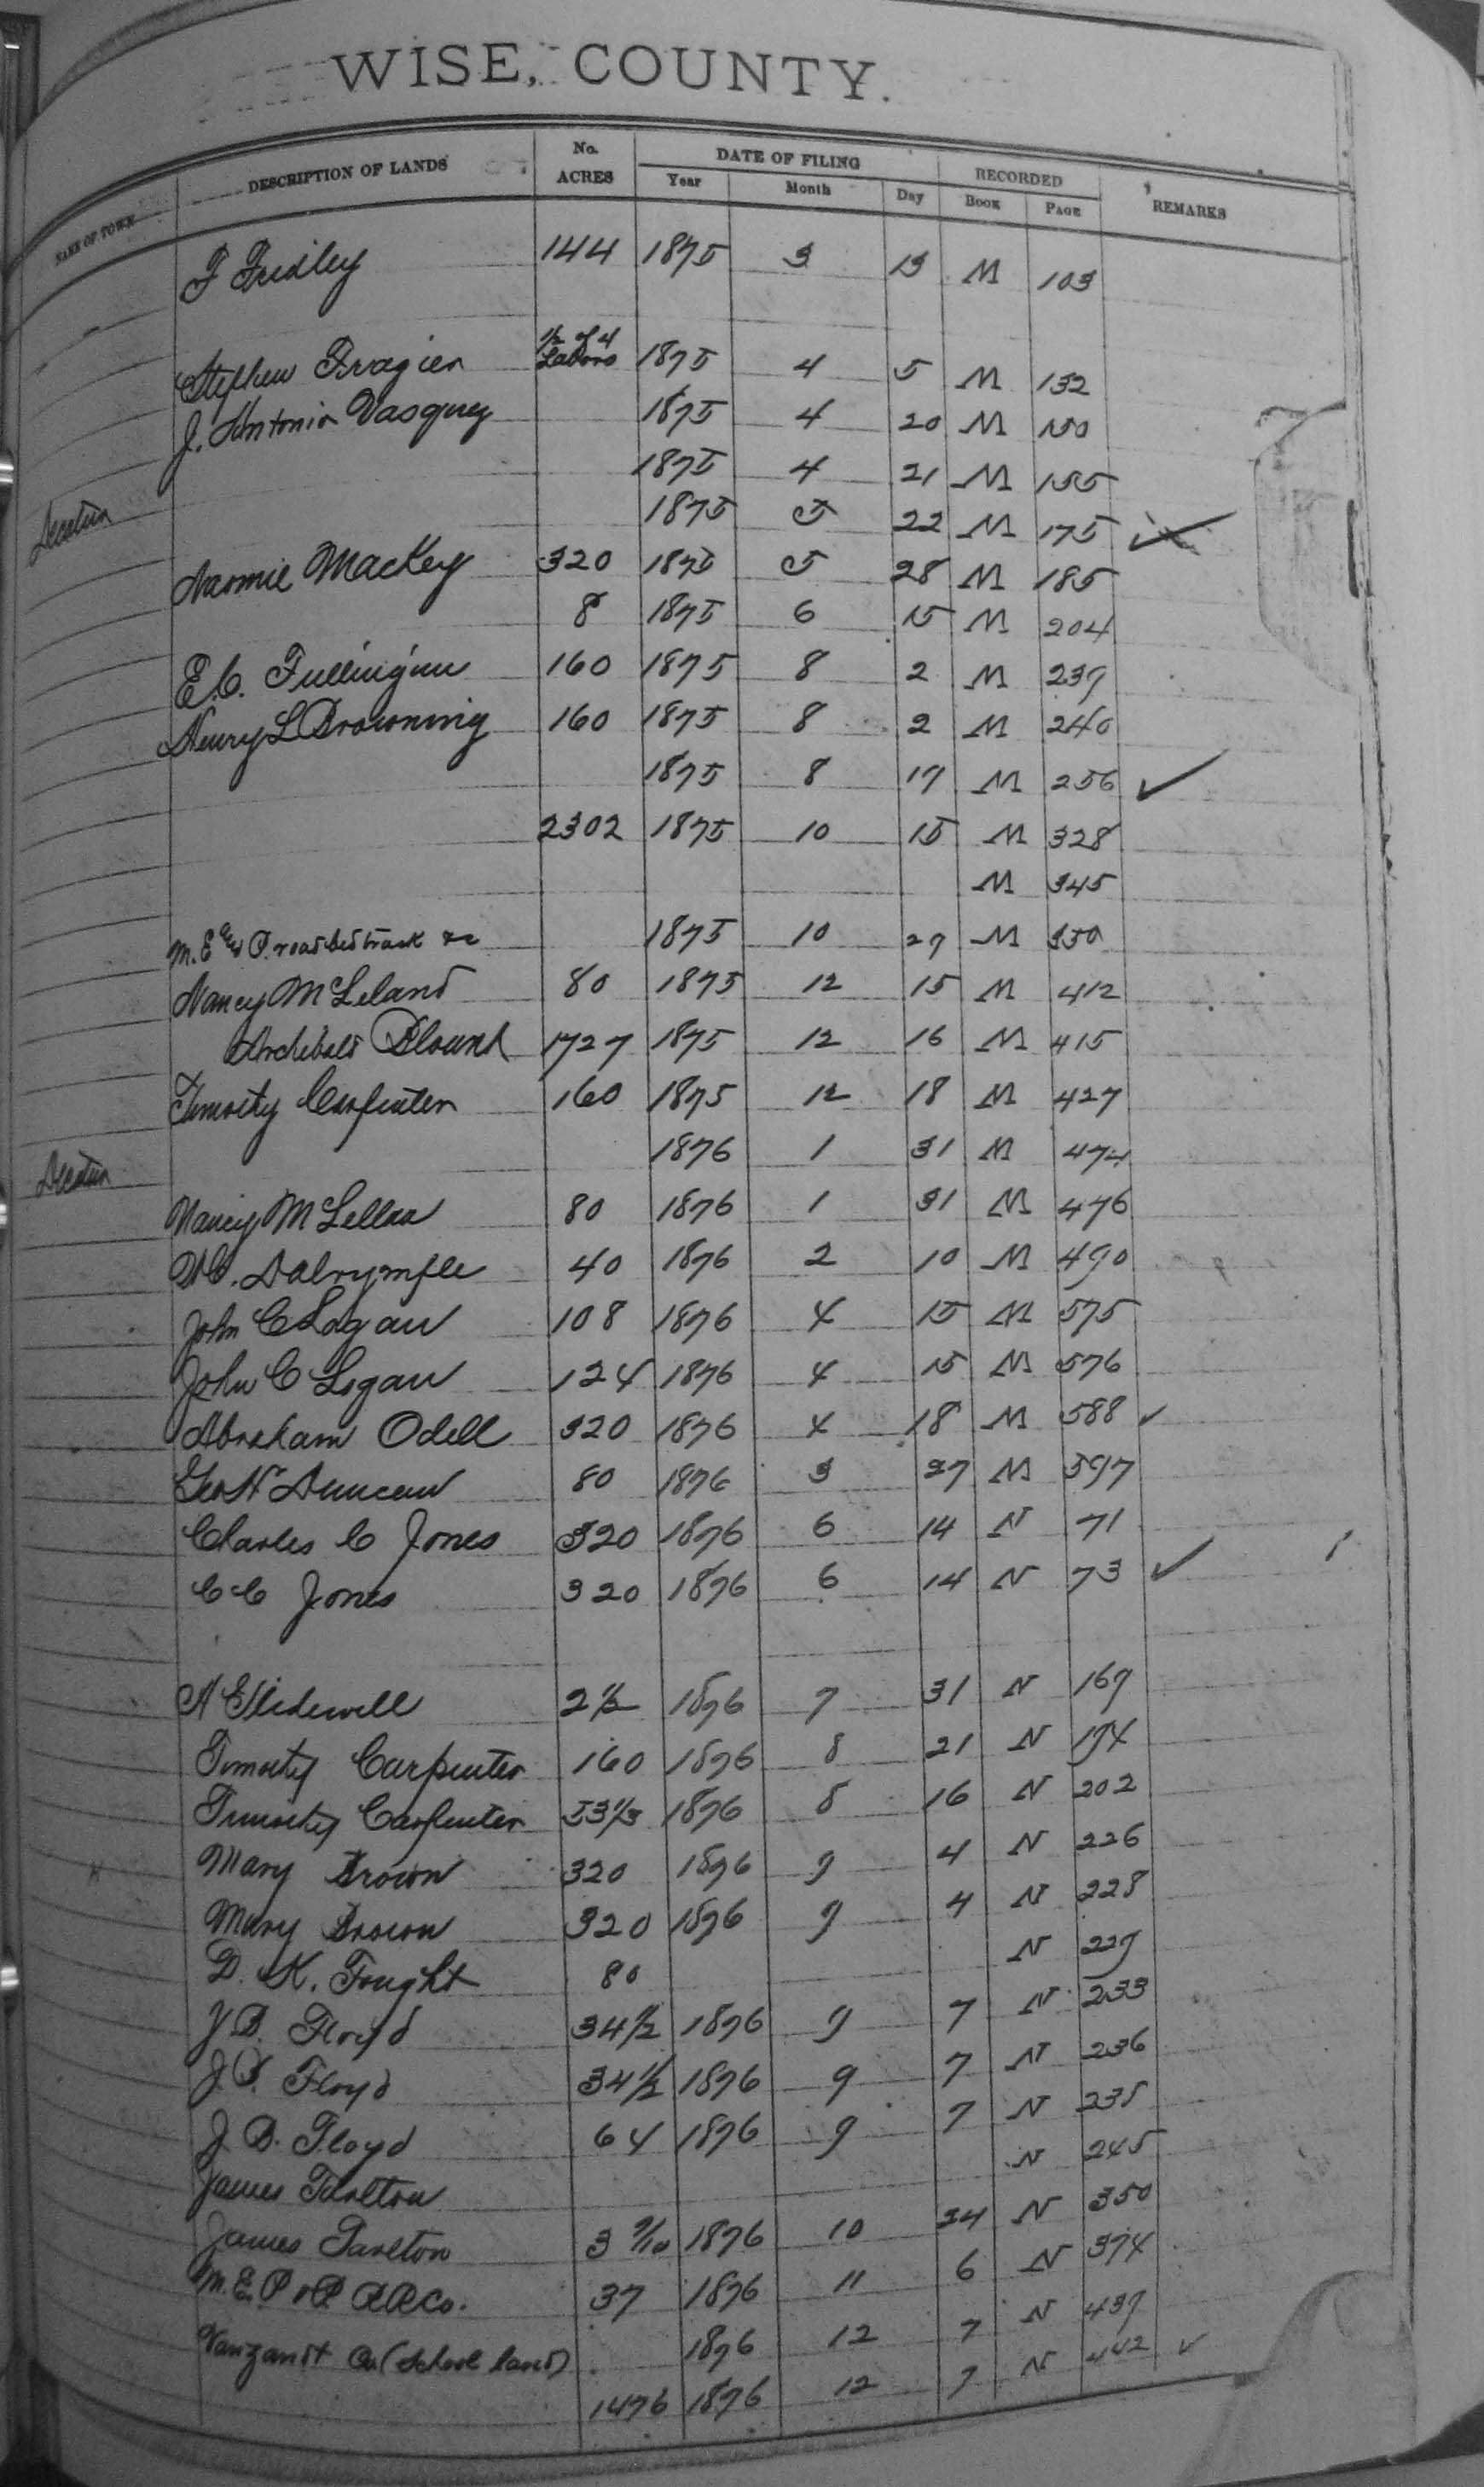 WISE, COUNTY.
NAME OF TOWN DESCRIPTION OF LANDS No. ACRES DATE OF FILING Year Month Day RECORDED BOOK PAGE REMARKS
F Fridley 144 1875 3 13 M 103
1/2 of 4
Stephen Frazier Labors 1875 4 5 M 132
J. Antonio Vasquez 1875 4 20 M 150
1875 4 21 M 155
Decatur 1875 5 22 M 175
Naomie Mackey 320 1875 5 28 M 185
8 1875 6 15 M 204
E.C. Fullingim 160 1875 8 2 M 239
Henry L Browning 160 1875 8 2 M 240
1875 8 17 M 256 ✓
2302 1875 10 15 M 328
M 345
M. E. P. road bed track &c 1875 10 27 M 350
Nancy McLeland 80 1875 12 15 M 412
Archibald Blount 1727 1875 12 16 M 415
Timothy Carpenter 160 1875 12 18 M 427
Decatur 1876 1 31 M 474
Nancy McLellan 80 1876 1 31 M 476
Dalrymple 40 1876 2 10 M 490
John C Logan 108 1876 4 15 M 575
John C Logan 124 1876 4 15 M 576
Abraham Odell 320 1876 4 18 M 588 ✓
Geo N Duncan 80 1876 3 27 M 597
Charles C Jones 320 1876 6 14 N 71
C C Jones 320 1876 6 14 N 73 ✓
2 1/2 1876 7 31 N 169
Timothy Carpenter 160 1876 8 21 N 194
Timothy Carpenter 53 1/3 1876 8 16 N 202
Mary Brown 320 1876 9 4 N 226
Mary Brown 320 1876 9 4 N 228
D. K. Fought 80 N 229
J B. Floyd 34 1/2 1876 9 7 N 233
J. B. Floyd 34 1/2 1876 9 7 N 236
J. B. Floyd 64 1876 9 7 N 235
James Tarlton N 245
James Tarlton 3 9/10 1876 10 24 N 350
M. E. P & P RR Co. 37 1876 11 6 N 374
Vanzandt Co (School land) 1876 12 7 N 439
1476 1876 12 7 N 442 ✓